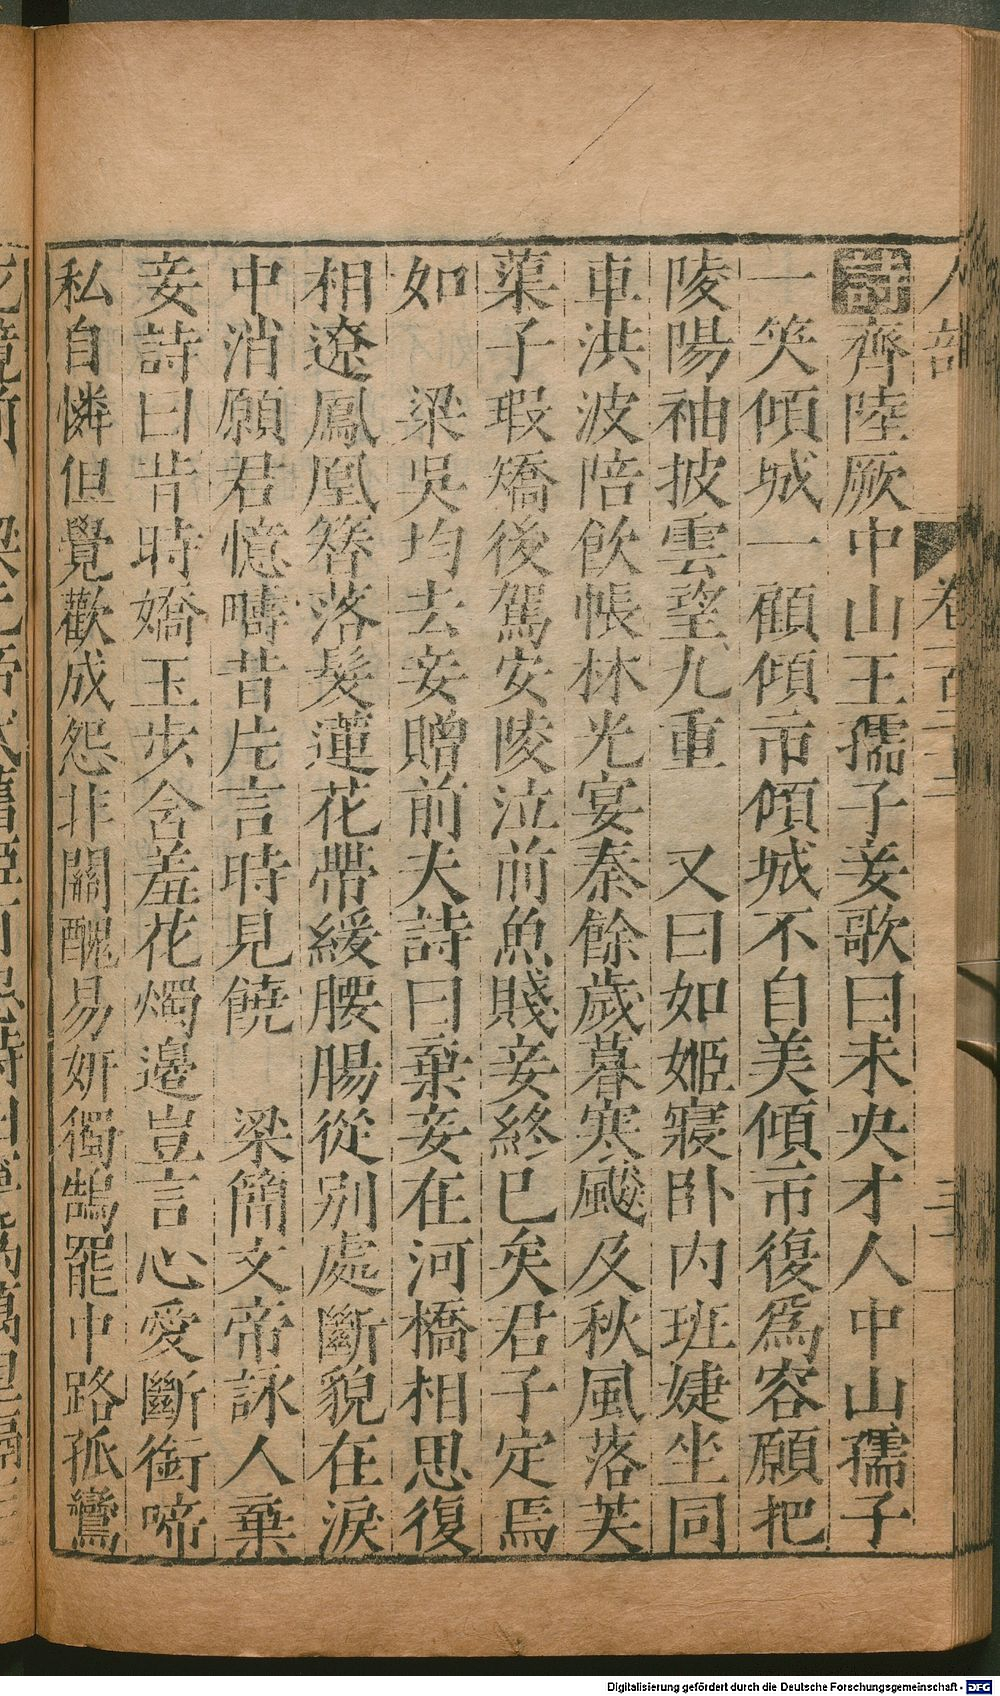 詩齊陸厥中山王孺子妾歌曰未央才人中山孺子
一笑傾城一顧傾市傾城不自美傾市復爲容願把
陵陽袖披雲望九重　又曰如姬寢卧内班婕坐同
車洪波陪飲帳林光宴秦餘歲暮寒飈及秋風落芙
蕖子瑕矯後駕安陵泣前魚賤妾終已矣君子定焉
如　梁吳均去妾贈前夫詩曰棄妾在河橋相思復
相遼鳳凰簪落髮蓮花帶緩腰腸從别處斷貌在淚
中消願君憶疇昔片言時見饒　梁簡文帝詠人棄
妾詩曰昔時嬌玉步含羞花燭邊豈言心愛斷銜啼
私自憐但覺歡成怨非關醜易妍獨鵠罷中路孤鸞
Digitalisierung gefördert durch die Deutsche Forschungsgemeinschaft - DFG